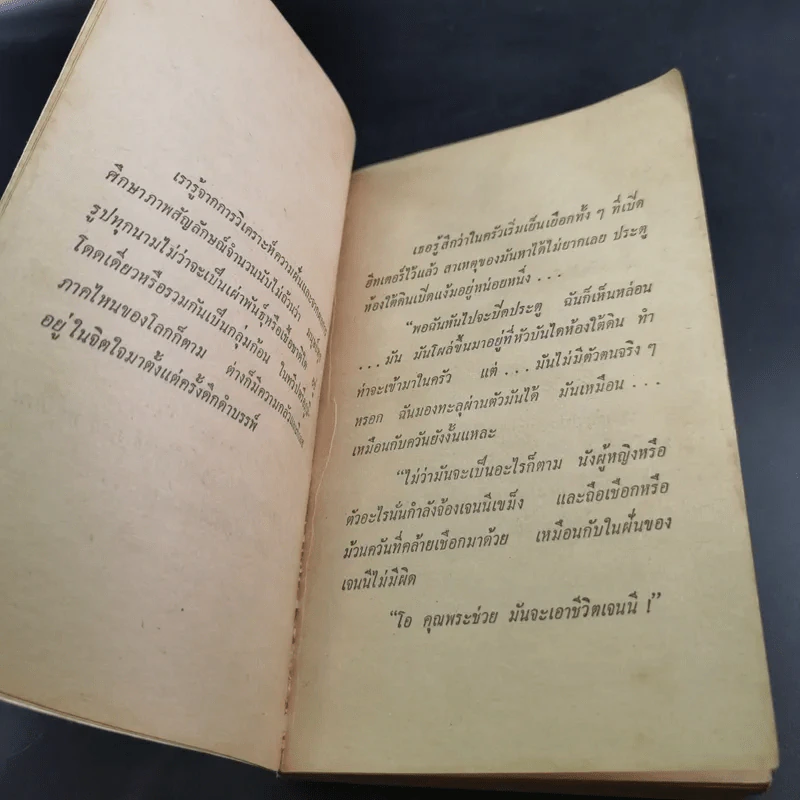 เรารู้จากการวิเคราะห์ความฝันและจาก
ศึกษาภาพสัญลักษณ์จำนวนนับไม่ถ้วนว่า มนุษย์ทุก
รูปทุกนามไม่ว่าจะเป็นเผ่าพันธุ์หรือเชื้อชาติใด
โดดเดี่ยวหรือรวมกันเป็นกลุ่มก้อน ในทวีป
ภาคไหนของโลกก็ตาม ต่างก็มีความกลัว
อยู่ในจิตใจมาตั้งแต่ครั้งดึกดำบรรพ์
เธอรู้สึกว่าในครัวเริ่มเย็นเยือกทั้ง ๆ ที่เปิด
ฮีทเตอร์ไว้แล้ว สาเหตุของมันหาได้ไม่ยากเลย ประตู
ห้องใต้ดินเปิดแง้มอยู่หน่อยหนึ่ง . . .
“พอฉันหันไปจะปิดประตู ฉันก็เห็นหล่อน
. . . มัน มันโผล่ขึ้นมาอยู่ที่หัวบันไดห้องใต้ดิน ทำ
ท่าจะเข้ามาในครัว แต่ . . . มันไม่มีตัวตนจริง ๆ
หรอก ฉันมองทะลุผ่านตัวมันได้ มันเหมือน . . .
เหมือนกับควันยังงั้นแหละ
“ไม่ว่ามันจะเป็นอะไรก็ตาม นังผู้หญิงหรือ
ตัวอะไรนั่นกำลังจ้องเจนนี่เขม็ง และถือเชือกหรือ
ม้วนควันที่คล้ายเชือกมาด้วย เหมือนกับในฝันของ
เจนนี่ไม่มีผิด
“โอ คุณพระช่วย มันจะเอาชีวิตเจนนี่ !”